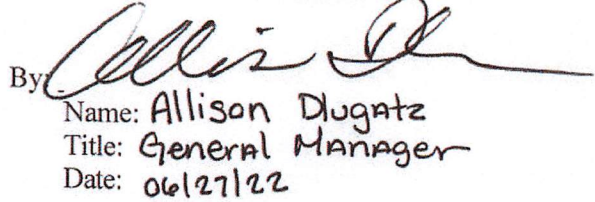 By: Allis D
Name: Allison Dlugatz
Title: General Manager
Date: 06/27/22